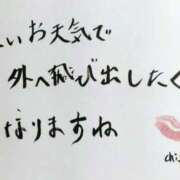 いお天気で
外へ飛び出したく
なりますね
chi